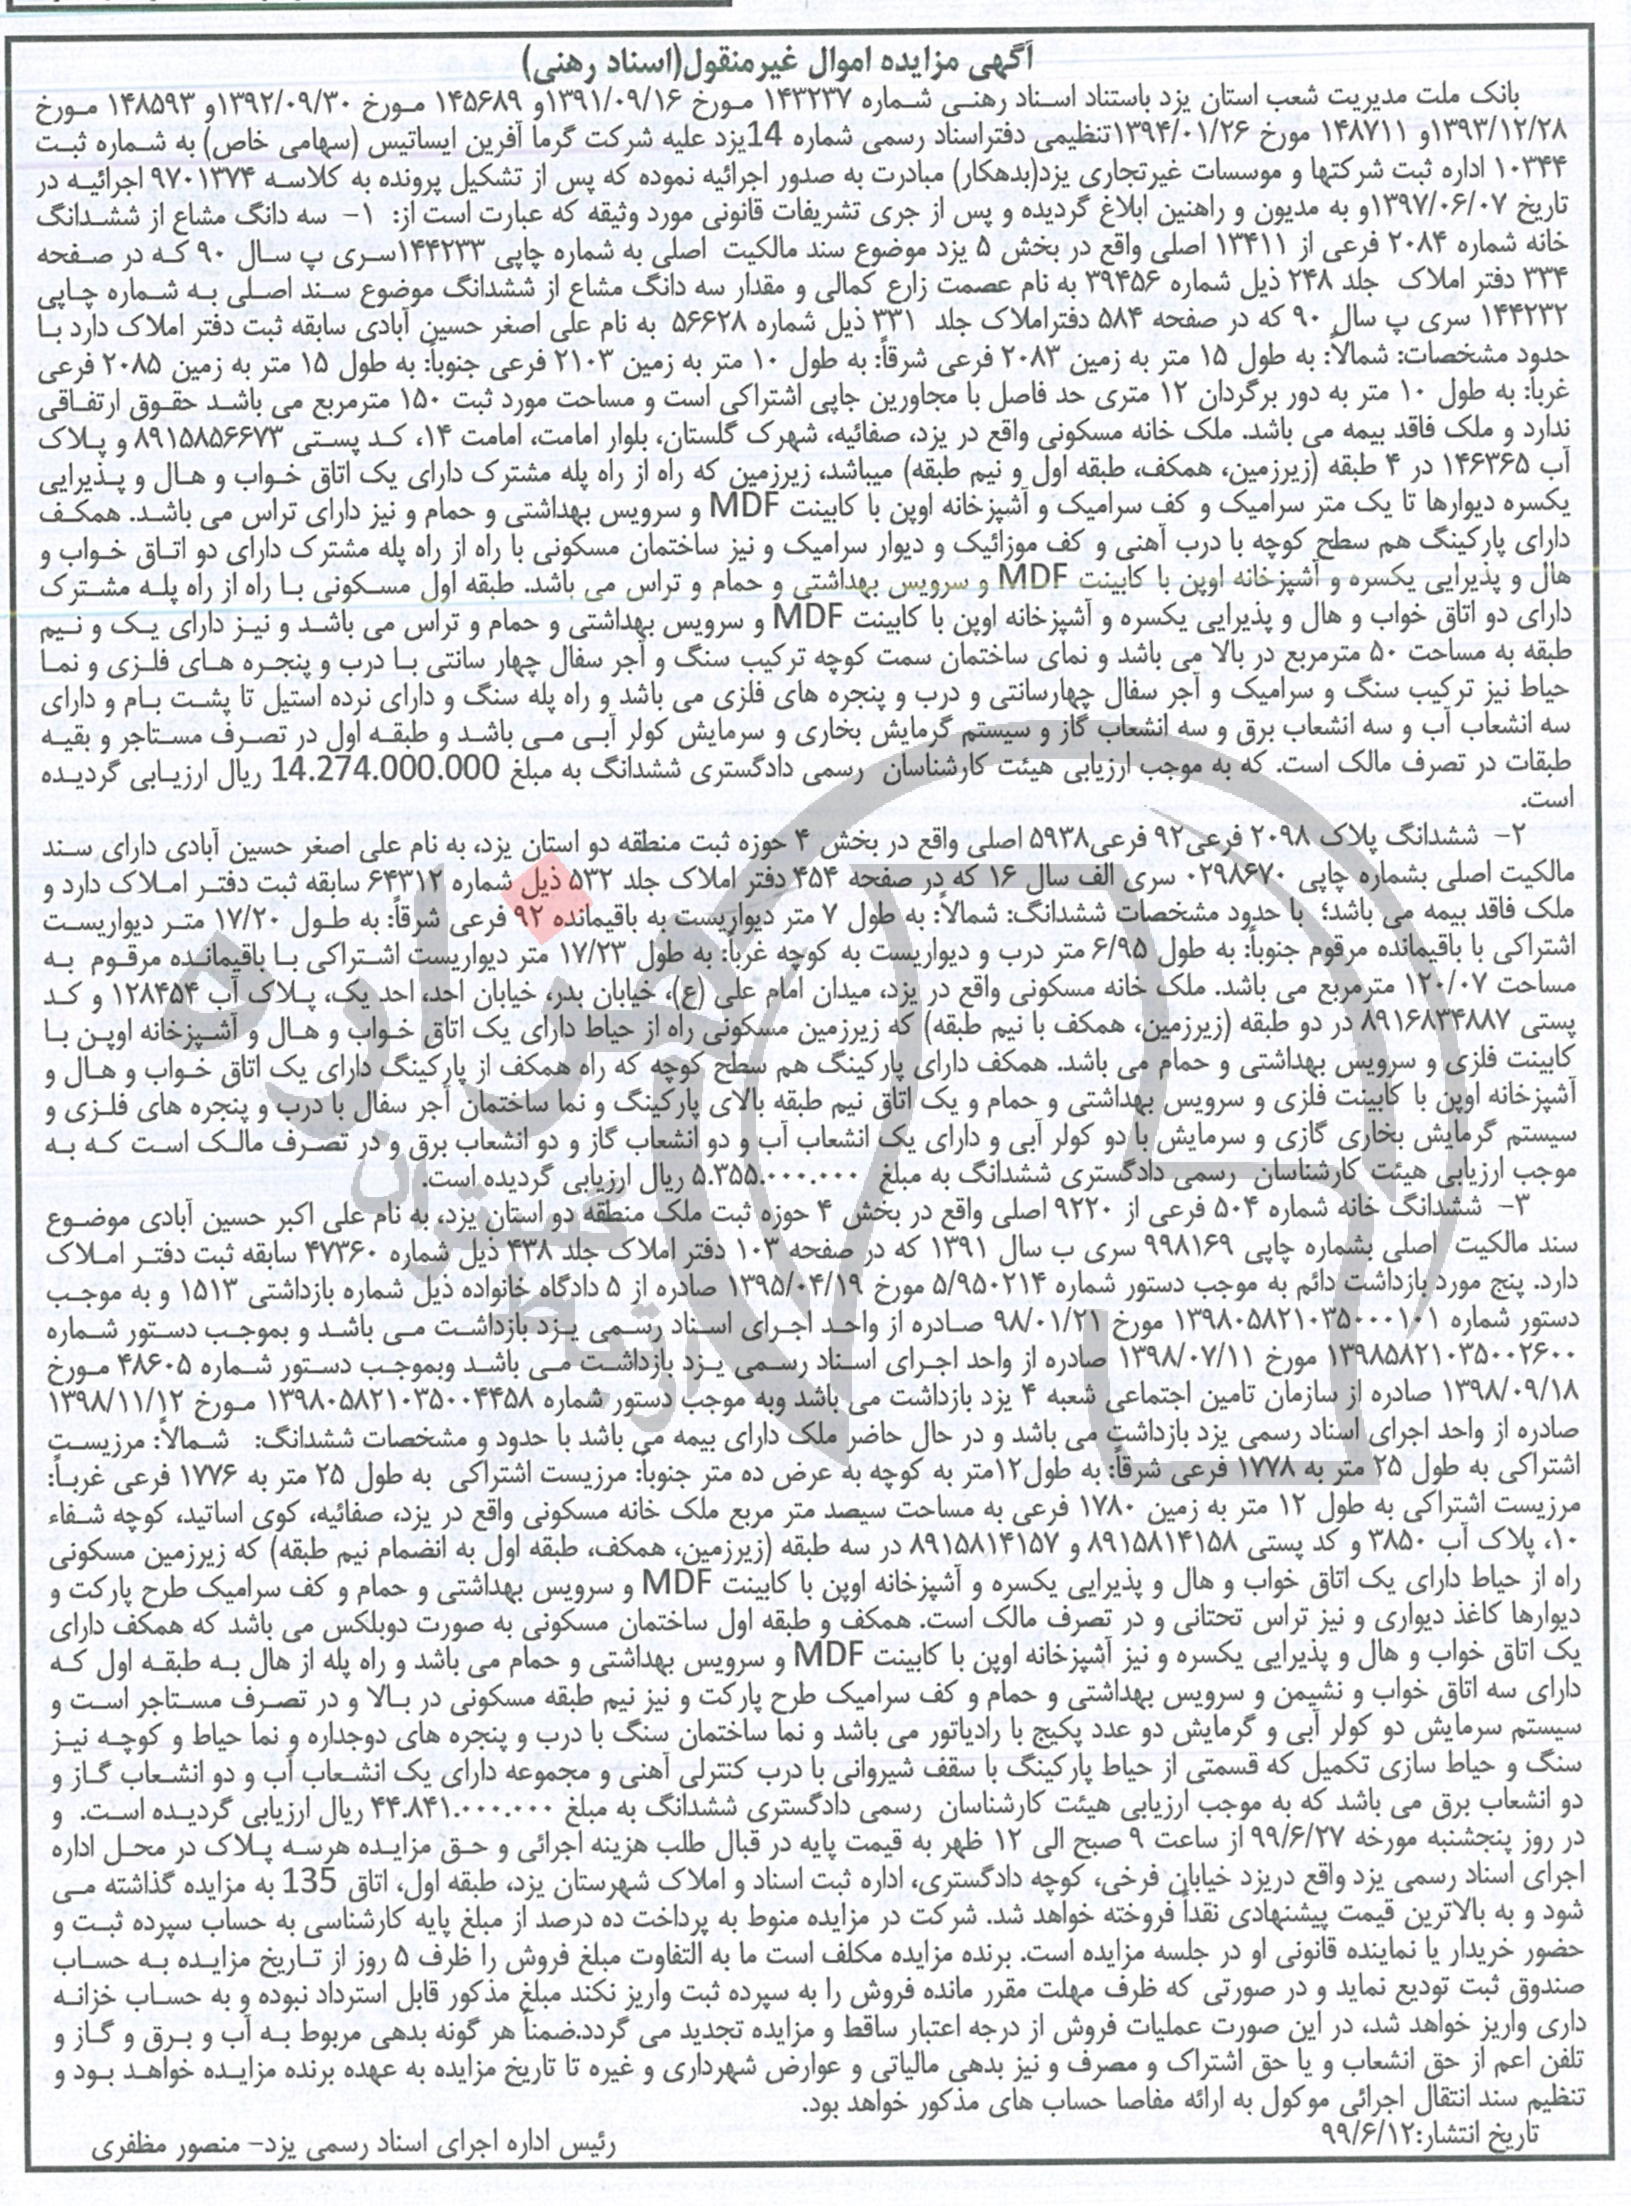 آگهی مزایده اموال غیرمنقول(اسناد رهنی)
بانک ملت مدیریت شعب استان یزد باستناد اسناد رهنی شماره ۱۴۳۲۳۷ مورخ ۱۳۹۱/۰۹/۱۶و ۱۴۵۶۸۹ مورخ ۱۳۹۲/۰۹/۳۰و ۱۴۸۵۹۳ مورخ
۱۳۹۳/۱۲/۲۸و ۱۴۸۷۱۱ مورخ ۱۳۹۴/۰۱/۲۶تنظیمی دفتراسناد رسمی شماره 14یزد علیه شرکت گرما آفرین ایساتیس (سهامی خاص) به شماره ثبت
۱۰۳۴۴ اداره ثبت شرکتها و موسسات غیرتجاری یزد(بدهکار) مبادرت به صدور اجرائیه نموده که پس از تشکیل پرونده به کلاسه ۹۷۰۱۳۷۴ اجرائیه در
تاریخ ۱۳۹۷/۰۶/۰۷و به مدیون و راهنین ابلاغ گردیده و پس از جری تشریفات قانونی مورد وثیقه که عبارت است از: ۱- سه دانگ مشاع از ششدانگ
خانه شماره ۲۰۸۴ فرعی از ۱۳۴۱۱ اصلی واقع در بخش ۵ یزد موضوع سند مالکیت اصلی به شماره چاپی ۱۴۴۲۳۳سری پ سال ۹۰ که در صفحه
۳۳۴ دفتر املاک جلد ۲۴۸ ذیل شماره ۳۹۴۵۶ به نام عصمت زارع کمالی و مقدار سه دانگ مشاع از ششدانگ موضوع سند اصلی به شماره چاپی
۱۴۴۲۳۲ سری پ سال ۹۰ که در صفحه ۵۸۴ دفتراملاک جلد ۳۳۱ ذیل شماره ۵۶۶۲۸ به نام علی اصغر حسین آبادی سابقه ثبت دفتر املاک دارد با
حدود مشخصات: شمالاً: به طول ۱۵ متر به زمین ۲۰۸۳ فرعی شرقاً: به طول ۱۰ متر به زمین ۲۱۰۳ فرعی جنوباً: به طول ۱۵ متر به زمین ۲۰۸۵ فرعی
غرباً: به طول ۱۰ متر به دور برگردان ۱۲ متری حد فاصل با مجاورین جاپی اشتراکی است و مساحت مورد ثبت ۱۵۰ مترمربع می باشد حقوق ارتفاقی
ندارد و ملک فاقد بیمه می باشد. ملک خانه مسکونی واقع در یزد، صفائیه، شهرک گلستان، بلوار امامت، امامت ۱۴، کد پستی ۸۹۱۵۸۵۶۶۷۳ و پلاک
آب ۱۴۶۳۶۵ در ۴ طبقه (زیرزمین، همکف، طبقه اول و نیم طبقه) میباشد، زیرزمین که راه از راه پله مشترک دارای یک اتاق خواب و هال و پذیرایی
یکسره دیوارها تا یک متر سرامیک و کف سرامیک و آشپزخانه اوپن با کابینت MDF و سرویس بهداشتی و حمام و نیز دارای تراس می باشد. همکف
دارای پارکینگ هم سطح کوچه با درب آهنی و کف موزائیک و دیوار سرامیک و نیز ساختمان مسکونی با راه از راه پله مشترک دارای دو اتاق خواب و
هال و پذیرایی یکسره و آشپزخانه اوپن با کابینت MDF و سرویس بهداشتی و حمام و تراس می باشد. طبقه اول مسکونی با راه از راه پله مشترک
دارای دو اتاق خواب و هال و پذیرایی یکسره و آشپزخانه اوپن با کابینت MDF و سرویس بهداشتی و حمام و تراس می باشد و نیز دارای یک و نیم
طبقه به مساحت ۵۰ مترمربع در بالا می باشد و نمای ساختمان سمت کوچه ترکیب سنگ و آجر سفال چهار سانتی با درب و پنجره های فلزی و نما
حیاط نیز ترکیب سنگ و سرامیک و آجر سفال چهارسانتی و درب و پنجره های فلزی می باشد و راه پله سنگ و دارای نرده استیل تا پشت بام و دارای
سه انشعاب آب و سه انشعاب برق و سه انشعاب گاز و سیستم گرمایش بخاری و سرمایش کولر آبی می باشد و طبقه اول در تصرف مستاجر و بقیه
طبقات در تصرف مالک است. که به موجب ارزیابی هیئت کارشناسان رسمی دادگستری ششدانگ به مبلغ 14.274.000.000 ریال ارزیابی گردیده
است.
۲- ششدانگ پلاک ۲۰۹۸ فرعی۹۲ فرعی۵۹۳۸ اصلی واقع در بخش ۴ حوزه ثبت منطقه دو استان یزد، به نام علی اصغر حسین آبادی دارای سند
مالکیت اصلی بشماره چاپی ۰۲۹۸۶۷۰ سری الف سال ۱۶ که در صفحه ۴۵۴ دفتر املاک جلد ۵۳۲ ذیل شماره ۶۴۳۱۲ سابقه ثبت دفتر املاک دارد و
ملک فاقد بیمه می باشد؛ با حدود مشخصات ششدانگ: شمالاً: به طول ۷ متر دیواریست به باقیمانده ۹۲ فرعی شرقاً: به طول ۱۷/۲۰ متر دیواریست
اشتراکی با باقیمانده مرقوم جنوباً: به طول ۶/۹۵ متر درب و دیواریست به کوچه غرباً: به طول ۱۷/۲۳ متر دیواریست اشتراکی با باقیمانده مرقوم به
مساحت ۱۲۰/۰۷ مترمربع می باشد. ملک خانه مسکونی واقع در یزد، میدان امام علی (ع)، خیابان بدر، خیابان احد، احد یک، پلاک آب ۱۲۸۴۵۴ و کد
پستی ۸۹۱۶۸۳۴۸۸۷ در دو طبقه (زیرزمین، همکف با نیم طبقه) که زیرزمین مسکونی راه از حیاط دارای یک اتاق خواب و هال و آشپزخانه اوپن با
کابینت فلزی و سرویس بهداشتی و حمام می باشد. همکف دارای پارکینگ هم سطح کوچه که راه همکف از پارکینگ دارای یک اتاق خواب و هال و
آشپزخانه اوپن با کابینت فلزی و سرویس بهداشتی و حمام و یک اتاق نیم طبقه بالای پارکینگ و نما ساختمان آجر سفال با درب و پنجره های فلزی و
سیستم گرمایش بخاری گازی و سرمایش با دو کولر آبی و دارای یک انشعاب آب و دو انشعاب گاز و دو انشعاب برق و در تصرف مالک است که به
موجب ارزیابی هیئت کارشناسان رسمی دادگستری ششدانگ به مبلغ ۵.۳۵۵.۰۰۰.۰۰۰ ریال ارزیابی گردیده است.
۳- ششدانگ خانه شماره ۵۰۴ فرعی از ۹۲۲۰ اصلی واقع در بخش ۴ حوزه ثبت ملک منطقه دو استان یزد، به نام علی اکبر حسین آبادی موضوع
سند مالکیت اصلی بشماره چاپی ۹۹۸۱۶۹ سری ب سال ۱۳۹۱ که در صفحه ۱۰۳ دفتر املاک جلد ۴۳۸ ذیل شماره ۴۷۳۶۰ سابقه ثبت دفتر املاک
دارد. پنج مورد بازداشت دائم به موجب دستور شماره ۵/۹۵۰۲۱۴ مورخ ۱۳۹۵/۰۴/۱۹ صادره از ۵ دادگاه خانواده ذیل شماره بازداشتی ۱۵۱۳ و به موجب
دستور شماره ۱۳۹۸۰۵۸۲۱۰۳۵۰۰۰۱۰۱ مورخ ۹۸/۰۱/۲۱ صادره از واحد اجرای اسناد رسمی یزد بازداشت می باشد و بموجب دستور شماره
۱۳۹۸۵۸۲۱۰۳۵۰۰۲۶۰۰ مورخ ۱۳۹۸/۰۷/۱۱ صادره از واحد اجرای اسناد رسمی یزد بازداشت می باشد وبموجب دستور شماره ۴۸۶۰۵ مورخ
۱۳۹۸/۰۹/۱۸ صادره از سازمان تامین اجتماعی شعبه ۴ یزد بازداشت می باشد وبه موجب دستور شماره ۱۳۹۸۰۵۸۲۱۰۳۵۰۰۴۴۵۸ مورخ ۱۳۹۸/۱۱/۱۲
صادره از واحد اجرای اسناد رسمی یزد بازداشت می باشد و در حال حاضر ملک دارای بیمه می باشد با حدود و مشخصات ششدانگ: شمالاً: مرزیست
اشتراکی به طول ۲۵ متر به ۱۷۷۸ فرعی شرقاً: به طول۱۲متر به کوچه به عرض ده متر جنوباً: مرزیست اشتراکی به طول ۲۵ متر به ۱۷۷۶ فرعی غرباً:
مرزیست اشتراکی به طول ۱۲ متر به زمین ۱۷۸۰ فرعی به مساحت سیصد متر مربع ملک خانه مسکونی واقع در یزد، صفائیه، کوی اساتید، کوچه شفاء
۱۰، پلاک آب ۳۸۵۰ و کد پستی ۸۹۱۵۸۱۴۱۵۸ و ۸۹۱۵۸۱۴۱۵۷ در سه طبقه (زیرزمین، همکف، طبقه اول به انضمام نیم طبقه) که زیرزمین مسکونی
راه از حیاط دارای یک اتاق خواب و هال و پذیرایی یکسره و آشپزخانه اوپن با کابینت MDF و سرویس بهداشتی و حمام و کف سرامیک طرح پارکت و
دیوارها کاغذ دیواری و نیز تراس تحتانی و در تصرف مالک است. همکف و طبقه اول ساختمان مسکونی به صورت دوبلکس می باشد که همکف دارای
یک اتاق خواب و هال و پذیرایی یکسره و نیز آشپزخانه اوپن با کابینت MDF و سرویس بهداشتی و حمام می باشد و راه پله از هال به طبقه اول که
دارای سه اتاق خواب و نشیمن و سرویس بهداشتی و حمام و کف سرامیک طرح پارکت و نیز نیم طبقه مسکونی در بالا و در تصرف مستاجر است و
سیستم سرمایش دو کولر آبی و گرمایش دو عدد پکیج با رادیاتور می باشد و نما ساختمان سنگ با درب و پنجره های دوجداره و نما حیاط و کوچه نیز
سنگ و حیاط سازی تکمیل که قسمتی از حیاط پارکینگ با سقف شیروانی با درب کنترلی آهنی و مجموعه دارای یک انشعاب آب و دو انشعاب گاز و
دو انشعاب برق می باشد که به موجب ارزیابی هیئت کارشناسان رسمی دادگستری ششدانگ به مبلغ ۴۴.۸۴۱.۰۰۰.۰۰۰ ریال ارزیابی گردیده است. و
در روز پنجشنبه مورخه ۹۹/۶/۲۷ از ساعت ۹ صبح الی ۱۲ ظهر به قیمت پایه در قبال طلب هزینه اجرائی و حق مزایده هرسه پلاک در محل اداره
اجرای اسناد رسمی یزد واقع دریزد خیابان فرخی، کوچه دادگستری، اداره ثبت اسناد و املاک شهرستان یزد، طبقه اول، اتاق 135 به مزایده گذاشته می
شود و به بالاترین قیمت پیشنهادی نقداً فروخته خواهد شد. شرکت در مزایده منوط به پرداخت ده درصد از مبلغ پایه کارشناسی به حساب سپرده ثبت و
حضور خریدار یا نماینده قانونی او در جلسه مزایده است. برنده مزایده مکلف است ما به التفاوت مبلغ فروش را ظرف ۵ روز از تاریخ مزایده به حساب
صندوق ثبت تودیع نماید و در صورتی که ظرف مهلت مقرر مانده فروش را به سپرده ثبت واریز نکند مبلغ مذکور قابل استرداد نبوده و به حساب خزانه
داری واریز خواهد شد، در این صورت عملیات فروش از درجه اعتبار ساقط و مزایده تجدید می گردد.ضمناً هر گونه بدهی مربوط به آب و برق و گاز و
تلفن اعم از حق انشعاب و یا حق اشتراک و مصرف و نیز بدهی مالیاتی و عوارض شهرداری و غیره تا تاریخ مزایده به عهده برنده مزایده خواهد بود و
تنظیم سند انتقال اجرائی موکول به ارائه مفاصا حساب های مذکور خواهد بود.
تاریخ انتشار:۹۹/۶/۱۲
رئیس اداره اجرای اسناد رسمی یزد- منصور مظفری